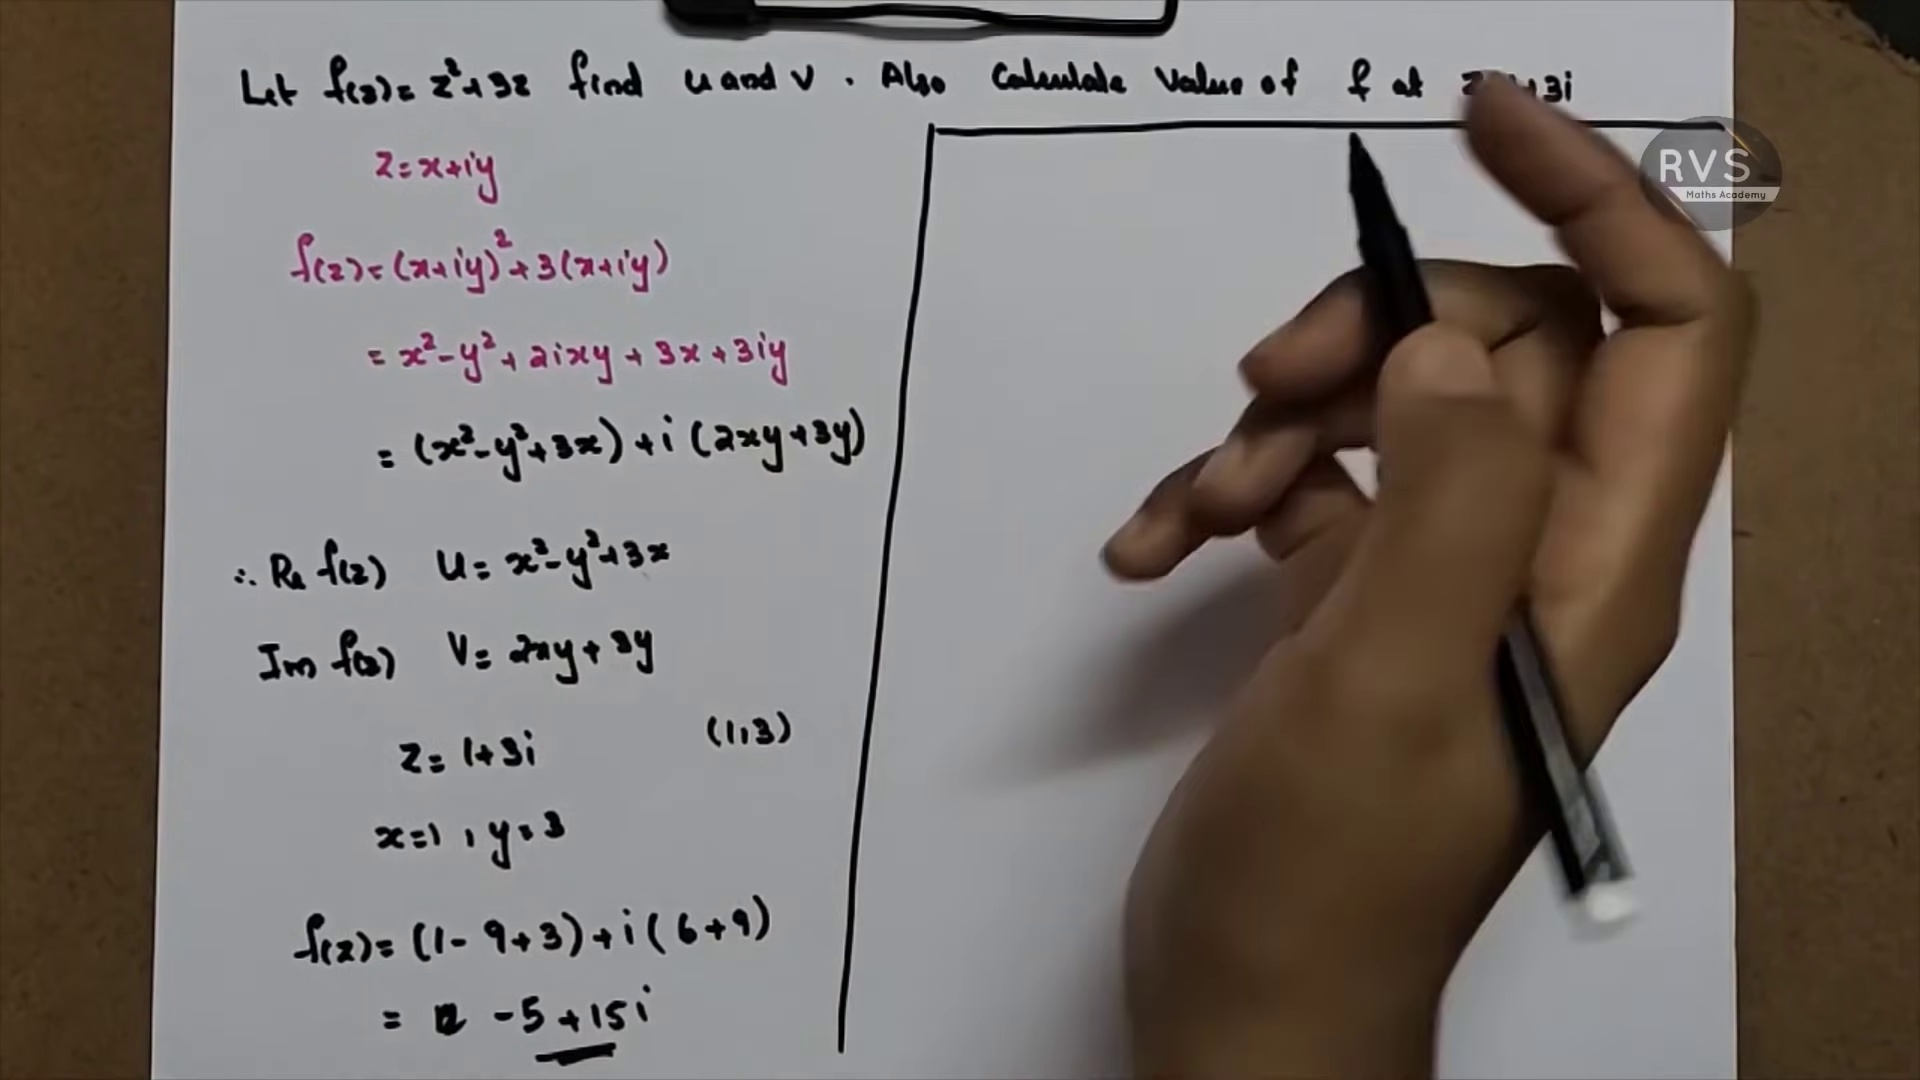 Let f(z) = z² + 3z find u and v . Also Calculate Value of f at + 3i
RVS
Maths Academy
z = x+iy
f(z) = (x+iy)² + 3(x+iy)
= x² - y² + 2ixy + 3x + 3iy
= (x² - y² + 3x) + i (2xy + 3y)
∴ Re f(z) u = x² - y² + 3x
Im f(z) v = 2xy + 3y
z = 1+3i (1,3)
x=1 , y=3
f(z) = (1 - 9 + 3) + i (6+9)
= -5 + 15i